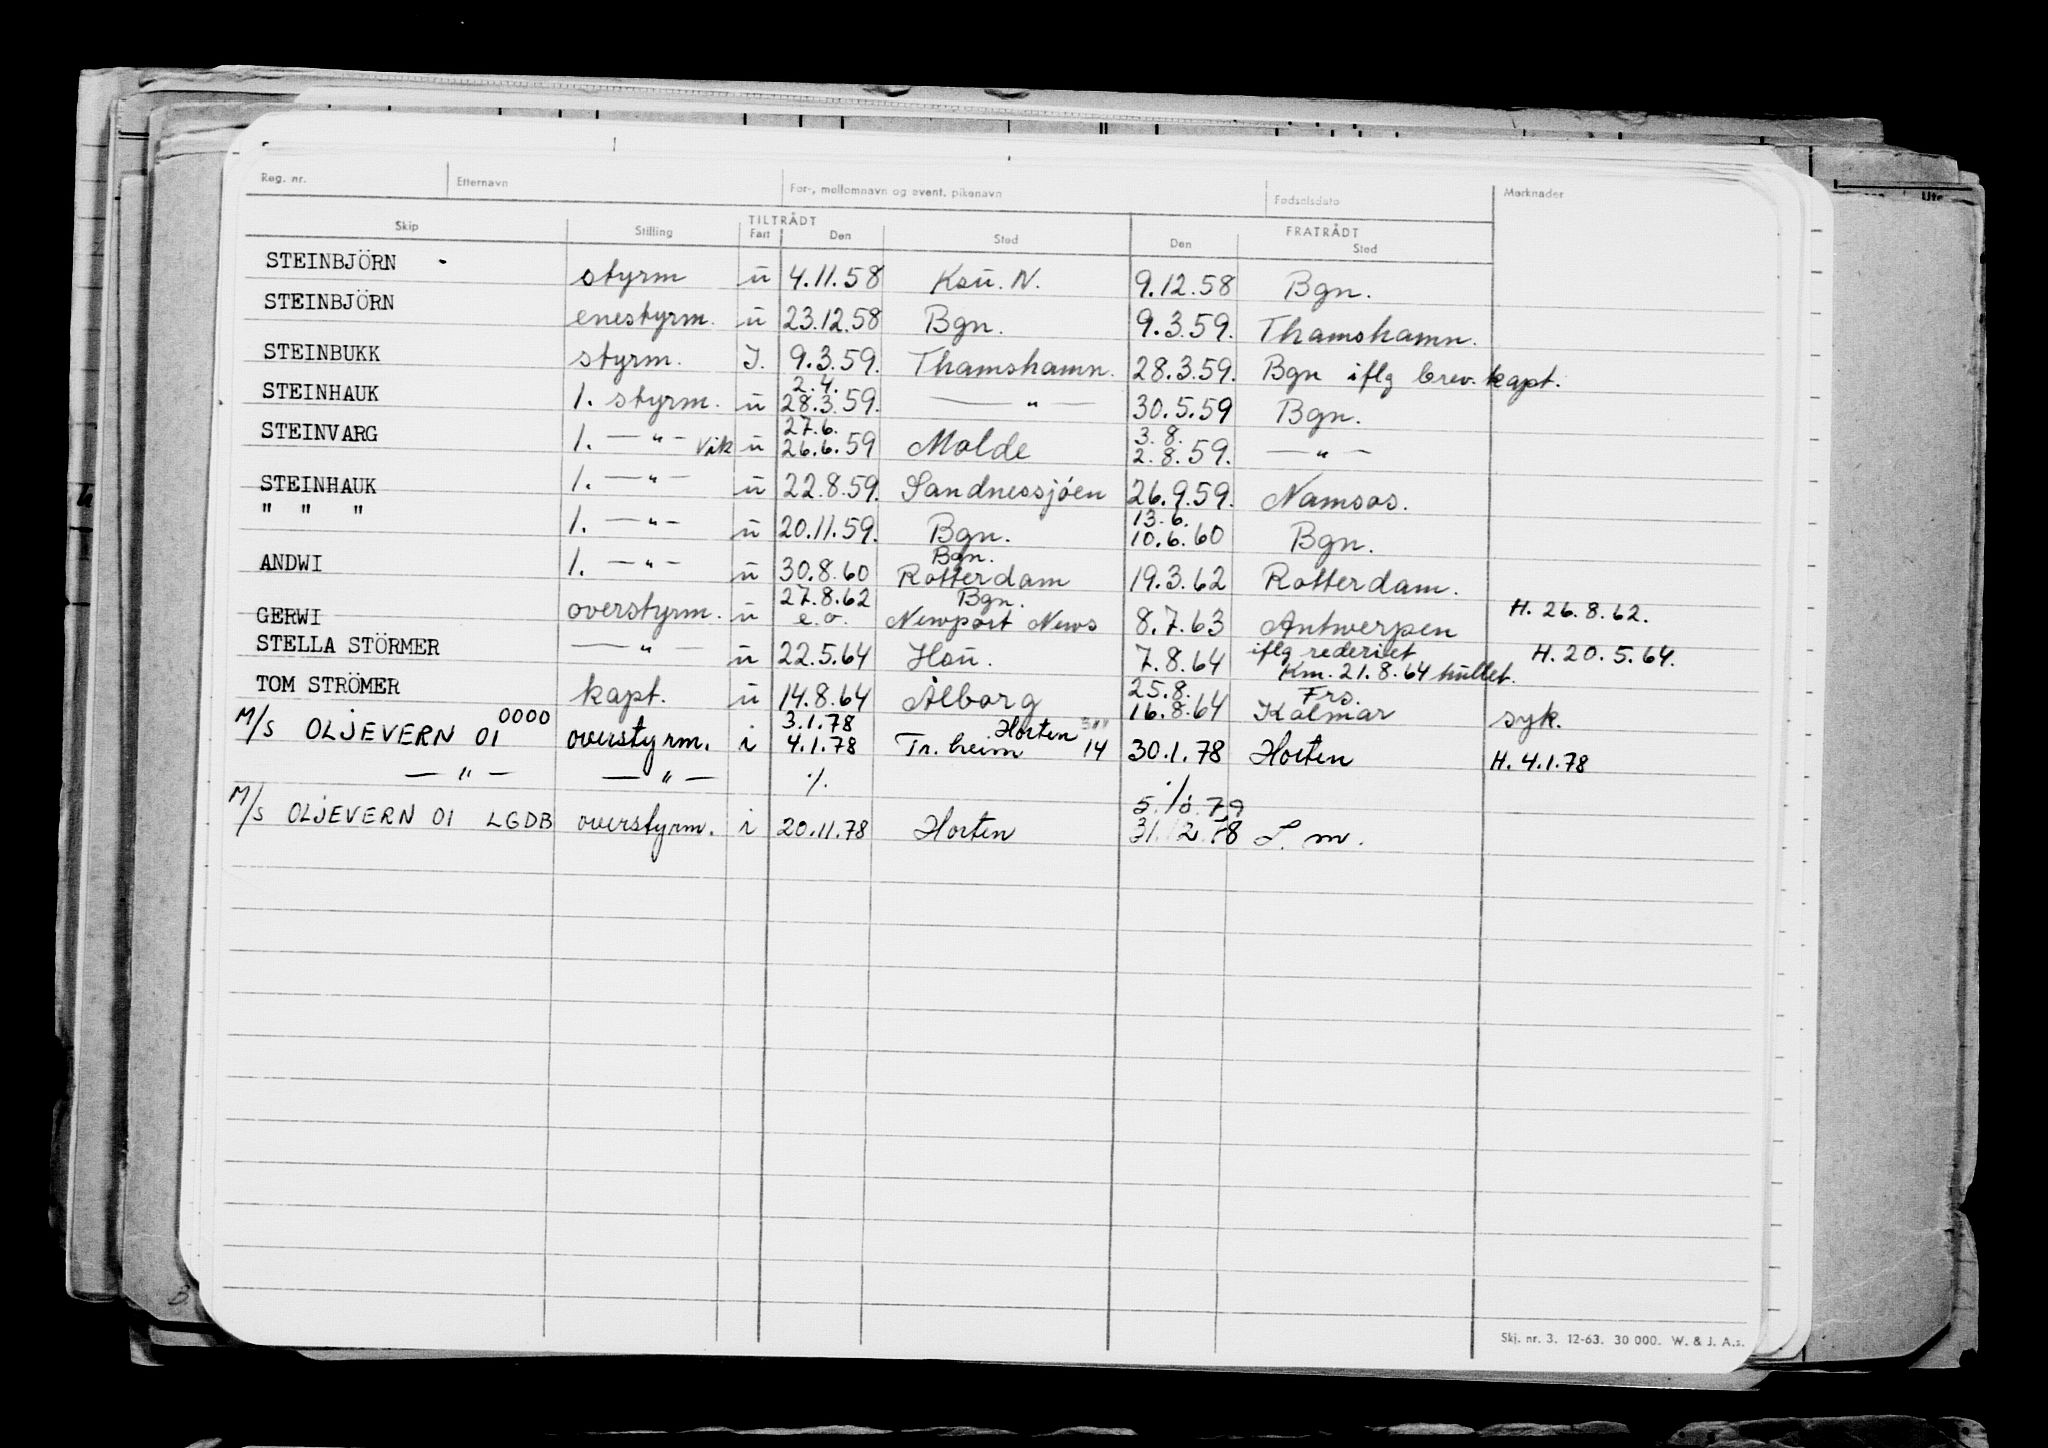 Reg. nr. Etternavn For-, mellomnavn og event. pikenavn Fødselsdato Merknader
TILTRÅDT FRATRÅDT
Skip Stilling Fart Den Sted Den Sted
STEINBJÖRN styrm ū 4.11.58 Ksū. N. 9.12.58 Bgn.
STEINBJÖRN enestyrm. ū 23.12.58 Bgn. 9.3.59. Thamshamn.
STEINBUKK styrm. I. 9.3.59. Thamshamn. 28.3.59. Bgn iflg brev. kapt.
2.4.
STEINHAUK 1. styrm. ū 28.3.59. — " — 30.5.59 Bgn.
27.6. 3.8.
STEINVARG 1. — " — Vik ū 26.6.59 Molde 2.8.59. — " —
STEINHAUK 1. — " — ū 22.8.59. Sandnessjöen 26.9.59. Namsos.
13.6.
" " " 1. — " — ū 20.11.59. Bgn. 10.6.60 Bgn.
Bgn.
ANDWI 1. — " — ū 30.8.60 Rotterdam 19.3.62 Rotterdam.
27.8.62 Bgn.
GERWI overstyrm. ū e.o. Newport News 8.7.63 Antwerpen H. 26.8.62.
iflg rederiet
STELLA STÖRMER — " — ū 22.5.64 Hsū. 7.8.64 Km. 21.8.64 hullet. H. 20.5.64.
25.8. Frs.
TOM STRÖMER kapt. ū 14.8.64 Ålborg 16.8.64 Kalmar syk.
0000 3.1.78 Horten
M/S OLJEVERN 01 overstyrm. i 4.1.78 Tr.heim 14 30.1.78 Horten H. 4.1.78
— " — — " — ./. ./.
5. 6. 79
M/S OLJEVERN 01 LGDB overstyrm. i 20.11.78 Horten 31.12.78 S. m.
Skj. nr. 3. 12-63. 30 000. W. & J. A.s.